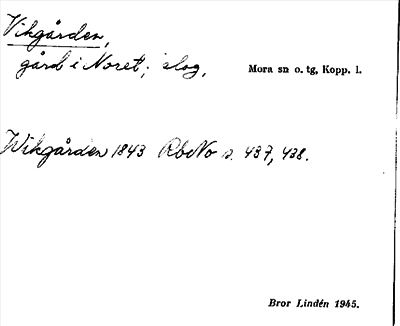 Vikgården,
gård i Noret; slog, Mora sn o. tg, Kopp. l.
Wikgården 1843 RbNo s. 437, 438.
Bror Lindén 1945.